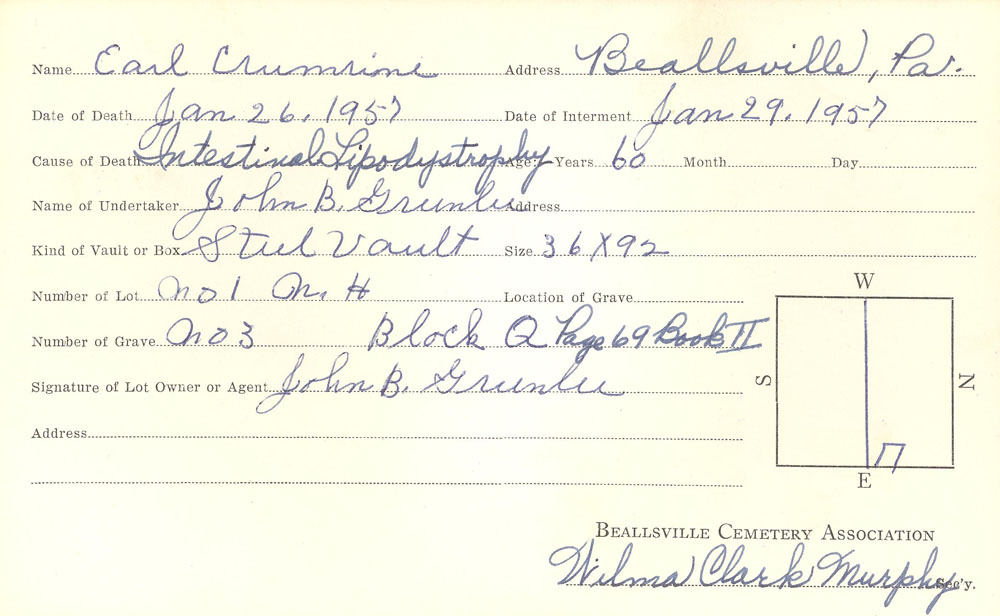 Name Earl Crumrine Address Beallsville, Pa.
Date of Death Jan 26, 1957 Date of Interment Jan 29, 1957
Cause of Death Intestinal Lipodystrophy Age: Years 60 Month Day
Name of Undertaker John B. Greenlee Address
Kind of Vault or Box Steel Vault Size 36 X 92
Number of Lot No 1 N. H Location of Grave
Number of Grave No 3 Block Q Page 69 Book II
Signature of Lot Owner or Agent John B. Greenlee
Address
W
S
N
E
BEALLSVILLE CEMETERY ASSOCIATION
Wilma Clark Murphy Sec'y.